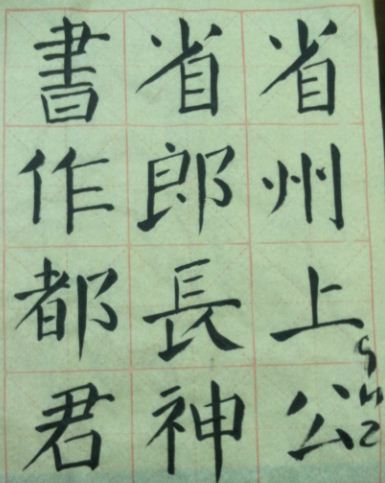 省州上公
省郎長神
書作都君